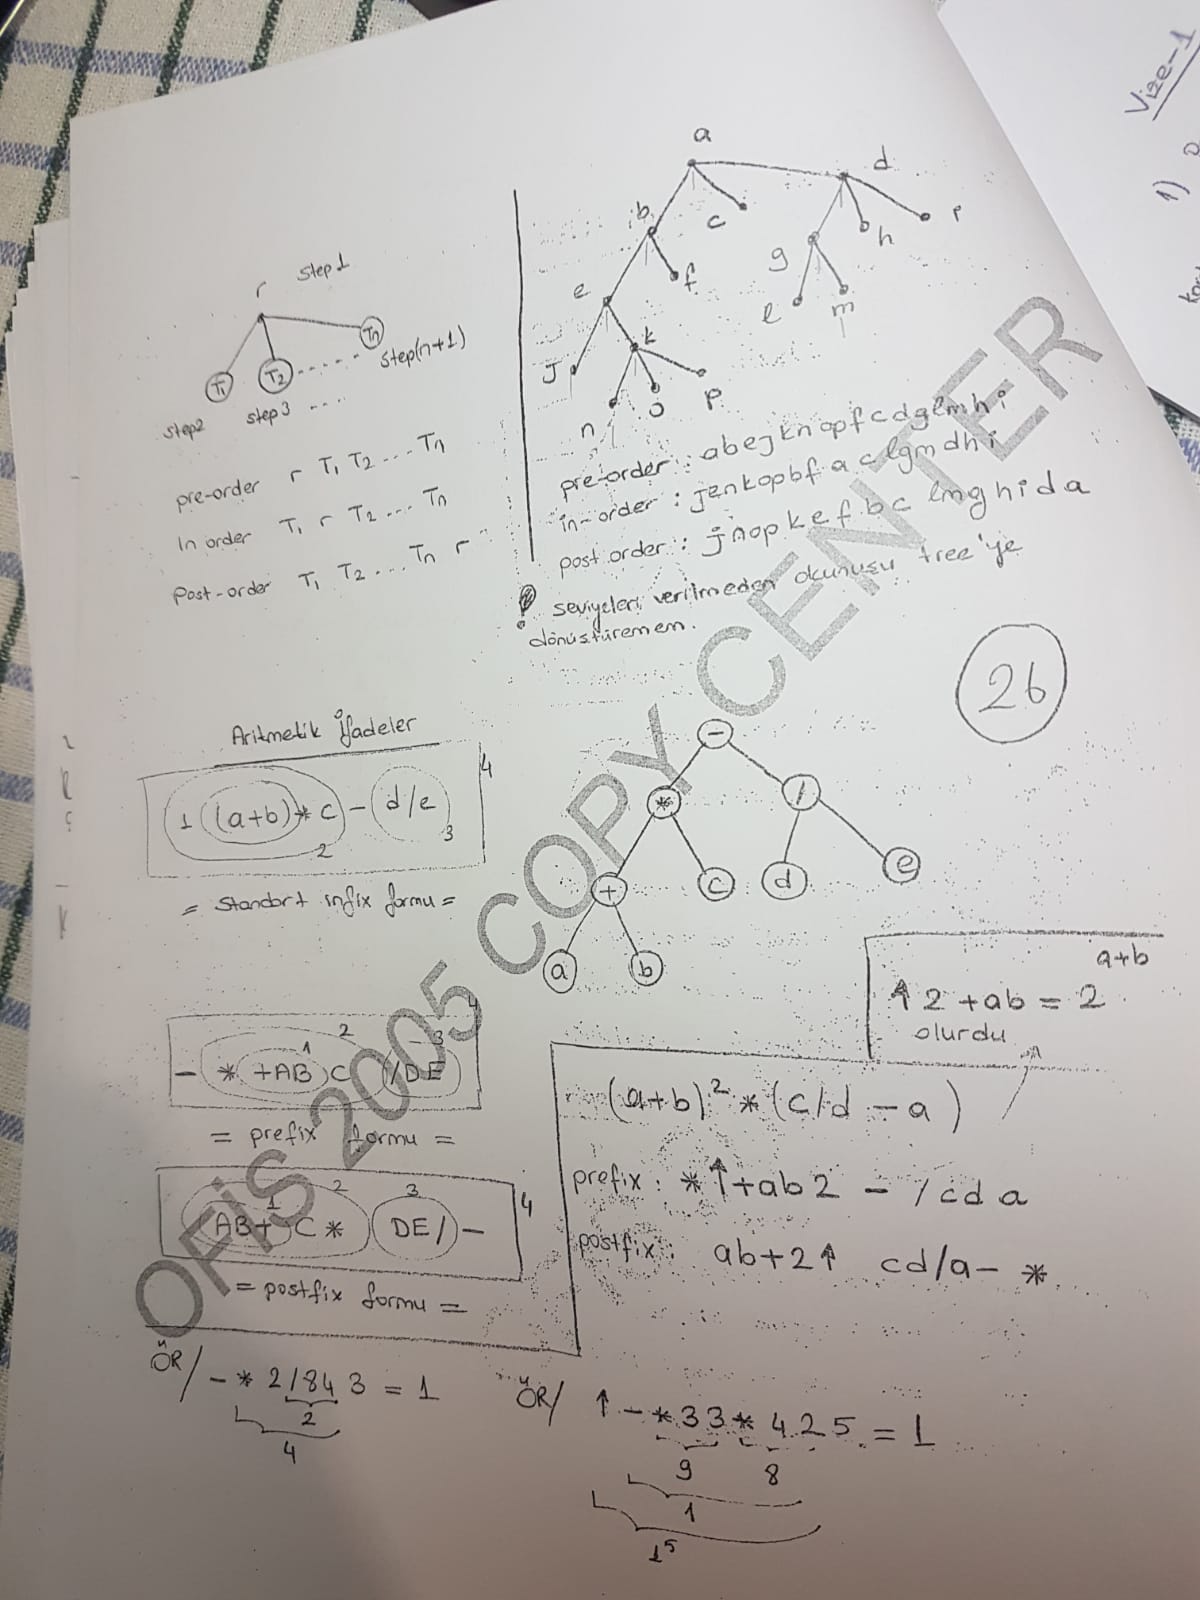 Vize-1
1)
r step1
T1 T2 Tn
step2 step3 .... step(n+1)
pre-order r T1 T2 .... Tn
In order T1 r T2 ... Tn
Post-order T1 T2 ... Tn r
a
b c d
e f g h
J k l m
n o p
pre-order : abejknopfcdglmhi
in-order : jenkopbf a clgmdhi
post order : jnopkefbc lmghida
! seviyeleri verilmeden okunuşu tree'ye
dönüştüremem.
26
Aritmetik İfadeler
1 ((a+b)*c) - (d/e)
2 3 4
= Standart infix formu =
-
* /
+ c d e
a b
a+b
↑2+ab = 2
olurdu
- * +AB C /DE
1 2 3 4
= prefix formu =
AB+ C * DE/ -
1 2 3 4
= postfix formu =
(a+b)² * (c/d - a)
prefix : *↑+ab2 - /cda
postfix : ab+2↑ cd/a- *
ÖR/ - * 2/84 3 = 1
2
4
ÖR/ ↑-*33*425 = 1
9 8
1
1⁵
OFİS 2005 COPY CENTER